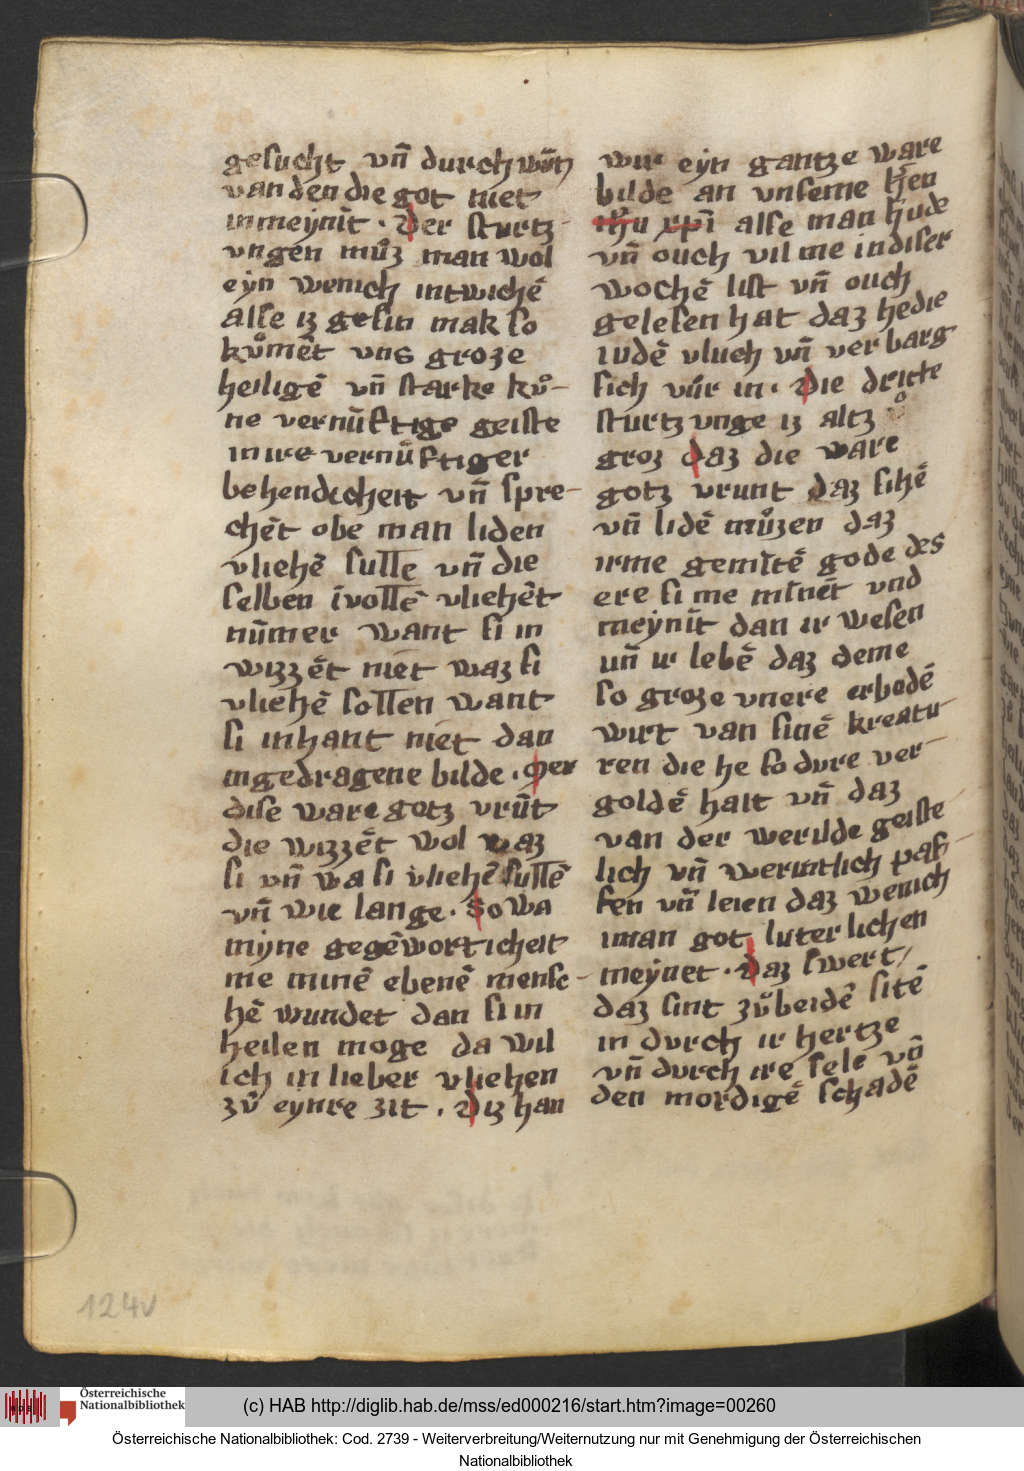 gesucht vn̄ durch wūn
van den die got niet
inmeynit̄ · Der sturtz
ungen mu̇z man wol
eyn wenich intwichē
alse iz gesin mak so
kůmēt uns groze
heiligē vn̄ starke ků-
ne vernūftige geiste
in ire vernūftiger
behendicheit vn̄ spre-
chēt obe man liden
vliehē sulle vn̄ die
selben īvollē vliehēt
nūmer want si in
wizzēt niet waz si
vliehē sollen want
si inhant niet dan
ingedragene bilde · Mer
dise ware gotz vrūt
die wizzēt wol waz
si vn̄ wa si vliehē sullē
vn̄ wie lange · So wa
mijne gegēworticheit
me minē ebenē mensc-
hē wundet dan si in
heilen moge da wil
ich in lieber vliehen
zů eynre zit · Diz han
wir eyn gantze ware
bilde an unseme h̄en
ih̄u xp̄i alse man hude
vn̄ ouch vil me in diser
wochē list vn̄ ouch
gelesen hat daz he die
iudē vluch vn̄ verbarg
sich vůr in · Die dritte
sturtzunge iz altz
groz daz die ware
gotz vrunt daz sihē
vn̄ lidē můzen daz
irme gemītē gode des
ere si me mīnēt vnd
meynīt dan ir wesen
un̄ ir lebē daz deme
so groze unere erbodē
wirt van sinē kreatu-
ren die he so dure ver-
goldē halt vn̄ daz
van der werilde geiste
lich vn̄ werintlich paf-
fen vn̄ leien daz wenich
iman got luterlichen
meynet · Daz swert/
daz sint zů beidē sitē
in durch ir hertze
vn̄ durch ire sele vn̄
den mordigē schadē
124v
Österreichische
Nationalbibliothek
(c) HAB http://diglib.hab.de/mss/ed000216/start.htm?image=00260
Österreichische Nationalbibliothek: Cod. 2739 - Weiterverbreitung/Weiternutzung nur mit Genehmigung der Österreichischen
Nationalbibliothek